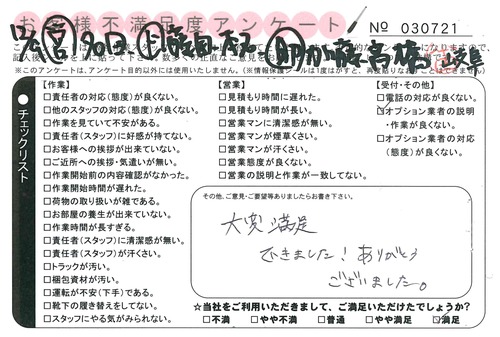 お客様不満足度アンケート
№ 030721
※このアンケートは、アンケート目的以外には使用いたしません。(※情報保護シールは1度はがすと、再度貼りなおすことはできません)
チェックリスト
【作業】
□責任者の対応(態度)が良くない。
□他のスタッフの対応(態度)が良くない。
□作業を見ていて不安がある。
□責任者(スタッフ)に好感が持てない。
□お客様への挨拶が出来ていない。
□ご近所への挨拶・気遣いが無い。
□作業開始前の内容確認がなかった。
□作業開始時間が遅れた。
□荷物の取り扱いが雑である。
□お部屋の養生が出来ていない。
□作業時間が長すぎる。
□責任者(スタッフ)に清潔感が無い。
□責任者(スタッフ)が汗くさい。
□トラックが汚い。
□梱包資材が汚い。
□運転が不安(下手)である。
□靴下の履き替えをしてない。
□スタッフにやる気がみられない。
【営業】
□見積もり時間に遅れた。
□見積もり時間が長い。
□営業マンに清潔感が無い。
□営業マンが煙草くさい。
□営業マンが汗くさい。
□営業態度が良くない。
□営業の説明と作業が一致してない。
【受付・その他】
□電話の対応が良くない。
□オプション業者の説明
・作業が良くない。
□オプション業者の対応
(態度)が良くない。
その他、ご意見・ご要望等ありましたらお書き下さい。
大変満足
できました!ありがとう
ございました。
☆当社をご利用いただきまして、ご満足いただけたでしょうか?
□不満 □やや不満 □普通 □やや満足 ☑満足